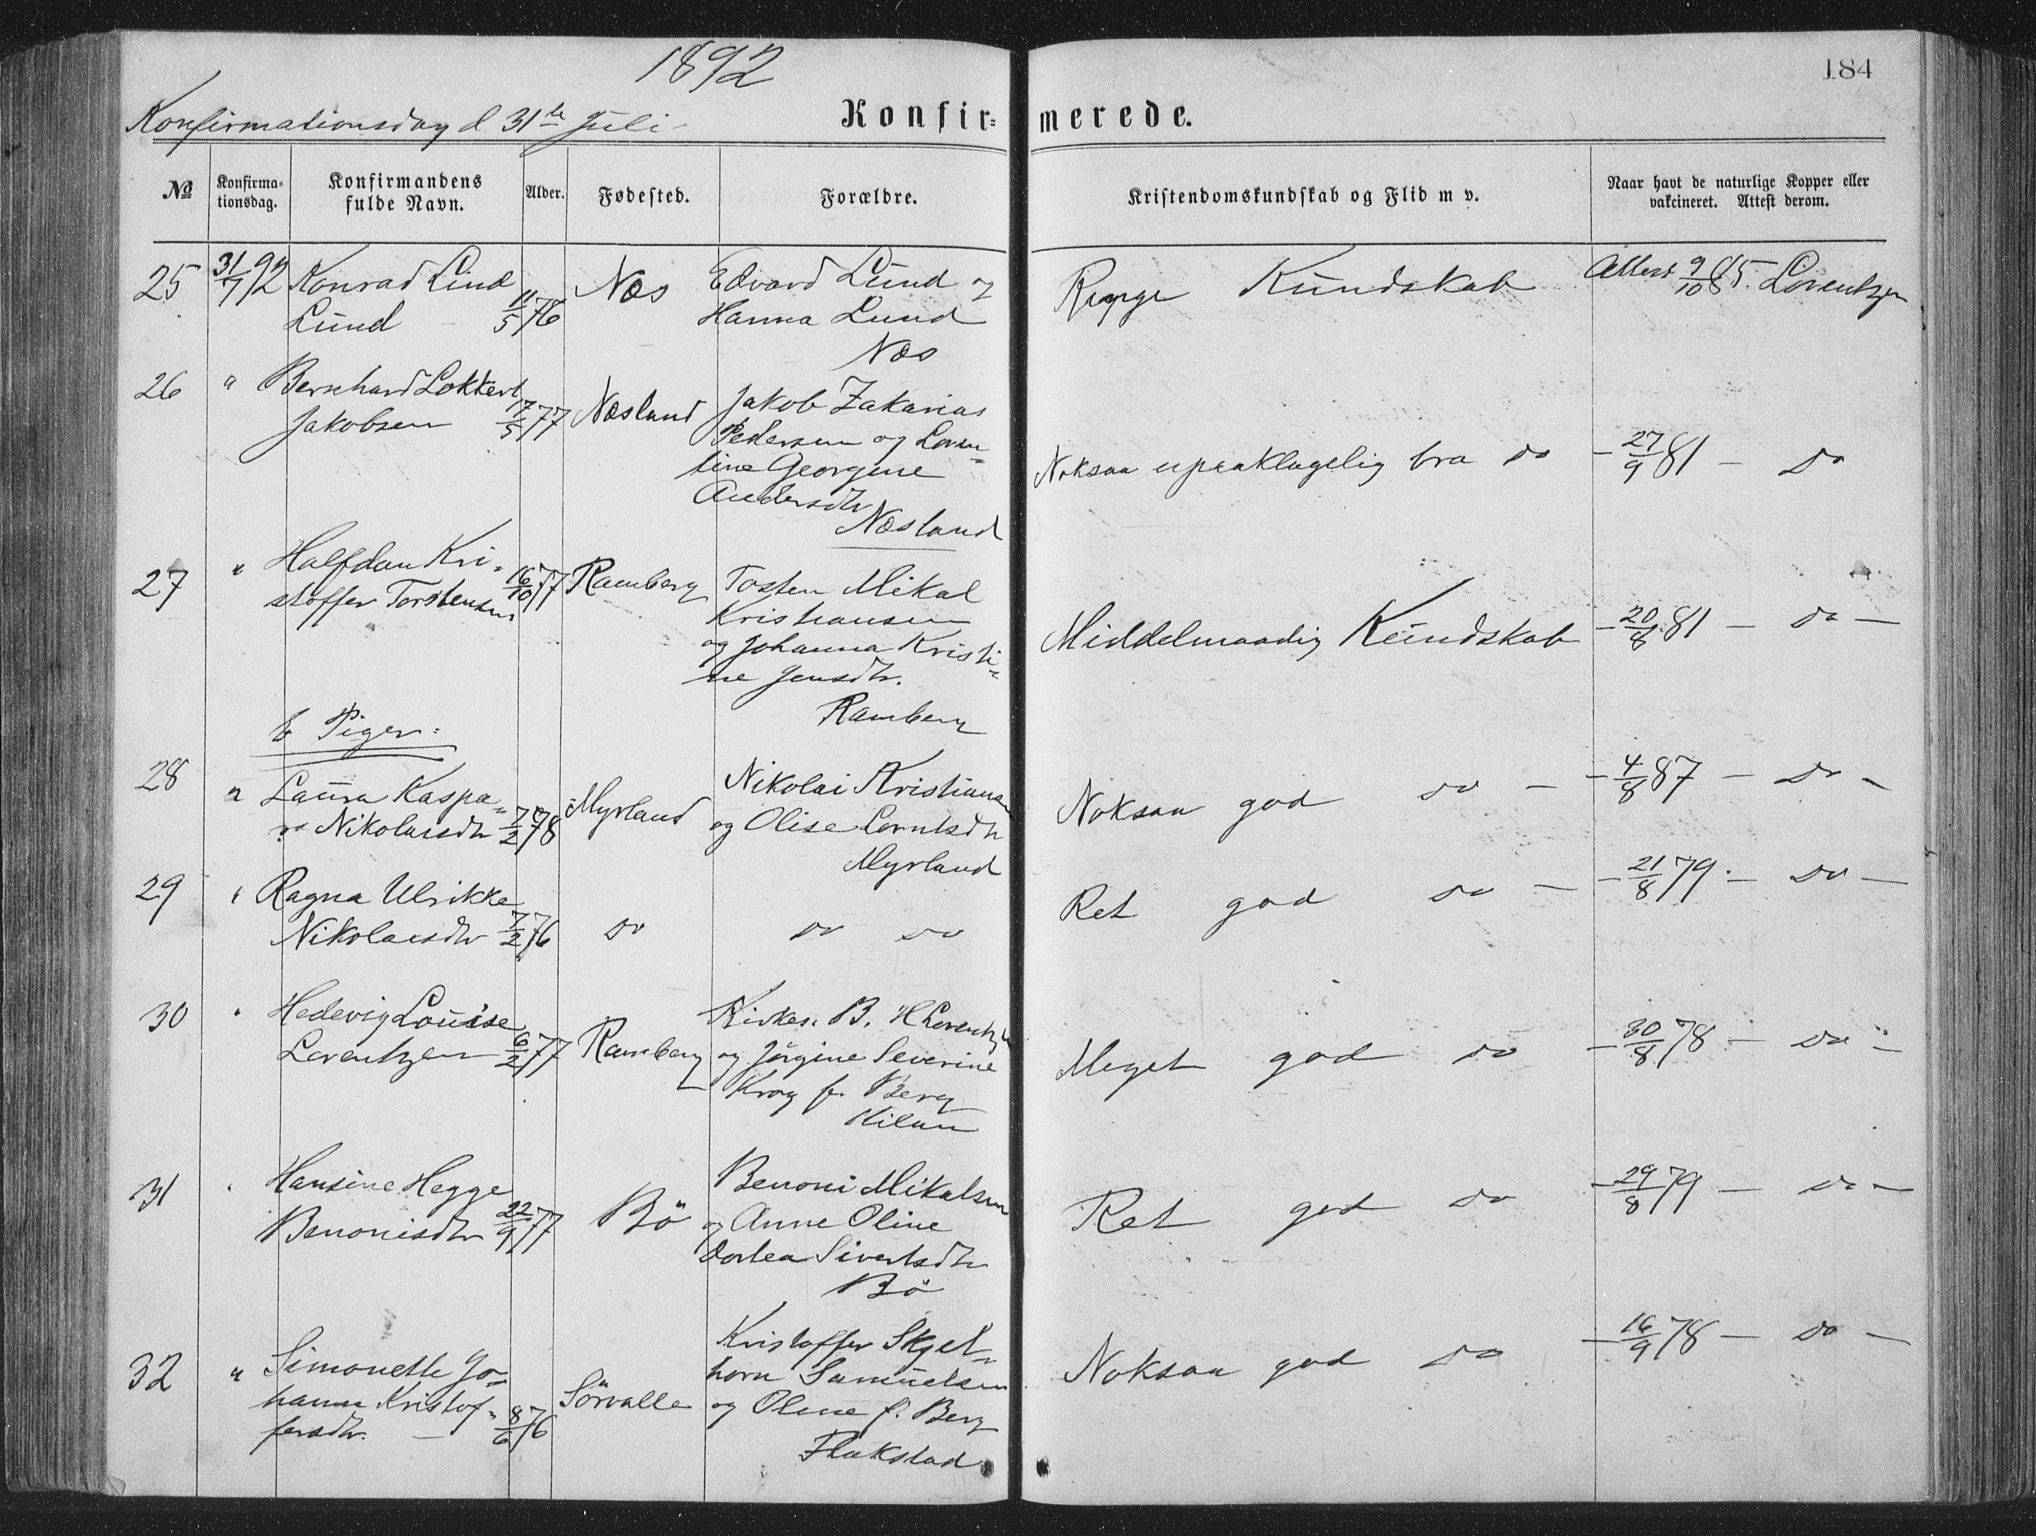 1892
184
Konfirmationsdag d 31te Juli
Konfir= merede.
No
Konfirma=
tionsdag.
Konfirmandens
fulde Navn.
Alder.
Fødested.
Forældre.
Kristendomskundskab og Flid m v.
Naar havt de naturlige Kopper eller
vakcineret. Attest derom.
25 31/7 92 Konrad Lind
Lund 11/5 76 Næs
Edvard Lund og
Hanna Lund
Næs
Ringe Kundskab Attest 9/10 85. Lorentzen
26 " Bernhard Lokkert
Jakobsen 17/5 77 Næsland
Jakob Zakarias
Pedersen og Loren=
tine Georgine
Andersdtr
Næsland
Noksaa upaaklagelig bra do – 27/9 81 – Do
27 " Halfdan Kri=
stoffer Torstensen 16/10 77 Ramberg
Tosten Mikal
Kristiansen
og Johanna Kristi=
ne Jensdtr.
Ramberg
Middelmaadig Kundskab – 20/8 81 – Do –
b Piger:
28 " Laura Kaspa=
ra Nikolaisdtr 7/2 78 Myrland
Nikolai Kristiansen
og Olise Lorntsdtr
Myrland
Noksaa god do – – 4/8 87 – Do –
29 " Ragna Ulrikke
Nikolaisdtr 7/2 76 do do do
Ret god do – – 21/8 79. – Do –
30 " Hedevig Louise
Lorentzen 6/2 77 Ramberg
Kirkes. B. H Lorentzen
og Jørgine Severine
Krog f. Berg
Kilan
Meget god do – 30/8 78 – Do –
31 " Hansine Hegge
Benonisdtr 22/9 77 Bö
Benoni Mikalsen
og Anne Oline
Dortea Sivertsdtr
Bö
Ret god do – 29/8 79 – do –
32 " Simonette Jo=
hanne Kristof=
fersdtr. – 8/6 76 Sörvalle
Kristoffer Skjet=
horn Samuelsen
og Oline f. Berg
Flakstad
Noksaa god do – 16/9 78 – Do –